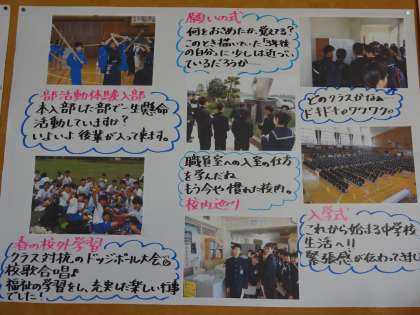 願いの式
何をお願したか、覚えてる?
このとき描いていた「3年後
の自分」に少しは近づい
ているだろうか
どのクラスかなぁ
ドキドキのワクワク。
部活動体験入部
本入部した部で一生懸命
活動していますか?
いよいよ後輩が入って来ます。
職員室への入室の仕方
を学んだね
もう今や慣れた校内。
校内巡り
入学式
これから始まる中学校
生活へ!!
緊張感が伝わってきます
春の校外学習
クラス対抗のドッジボール大会
校歌合唱♪
福祉の学習をし、充実した楽しい行事
でした!